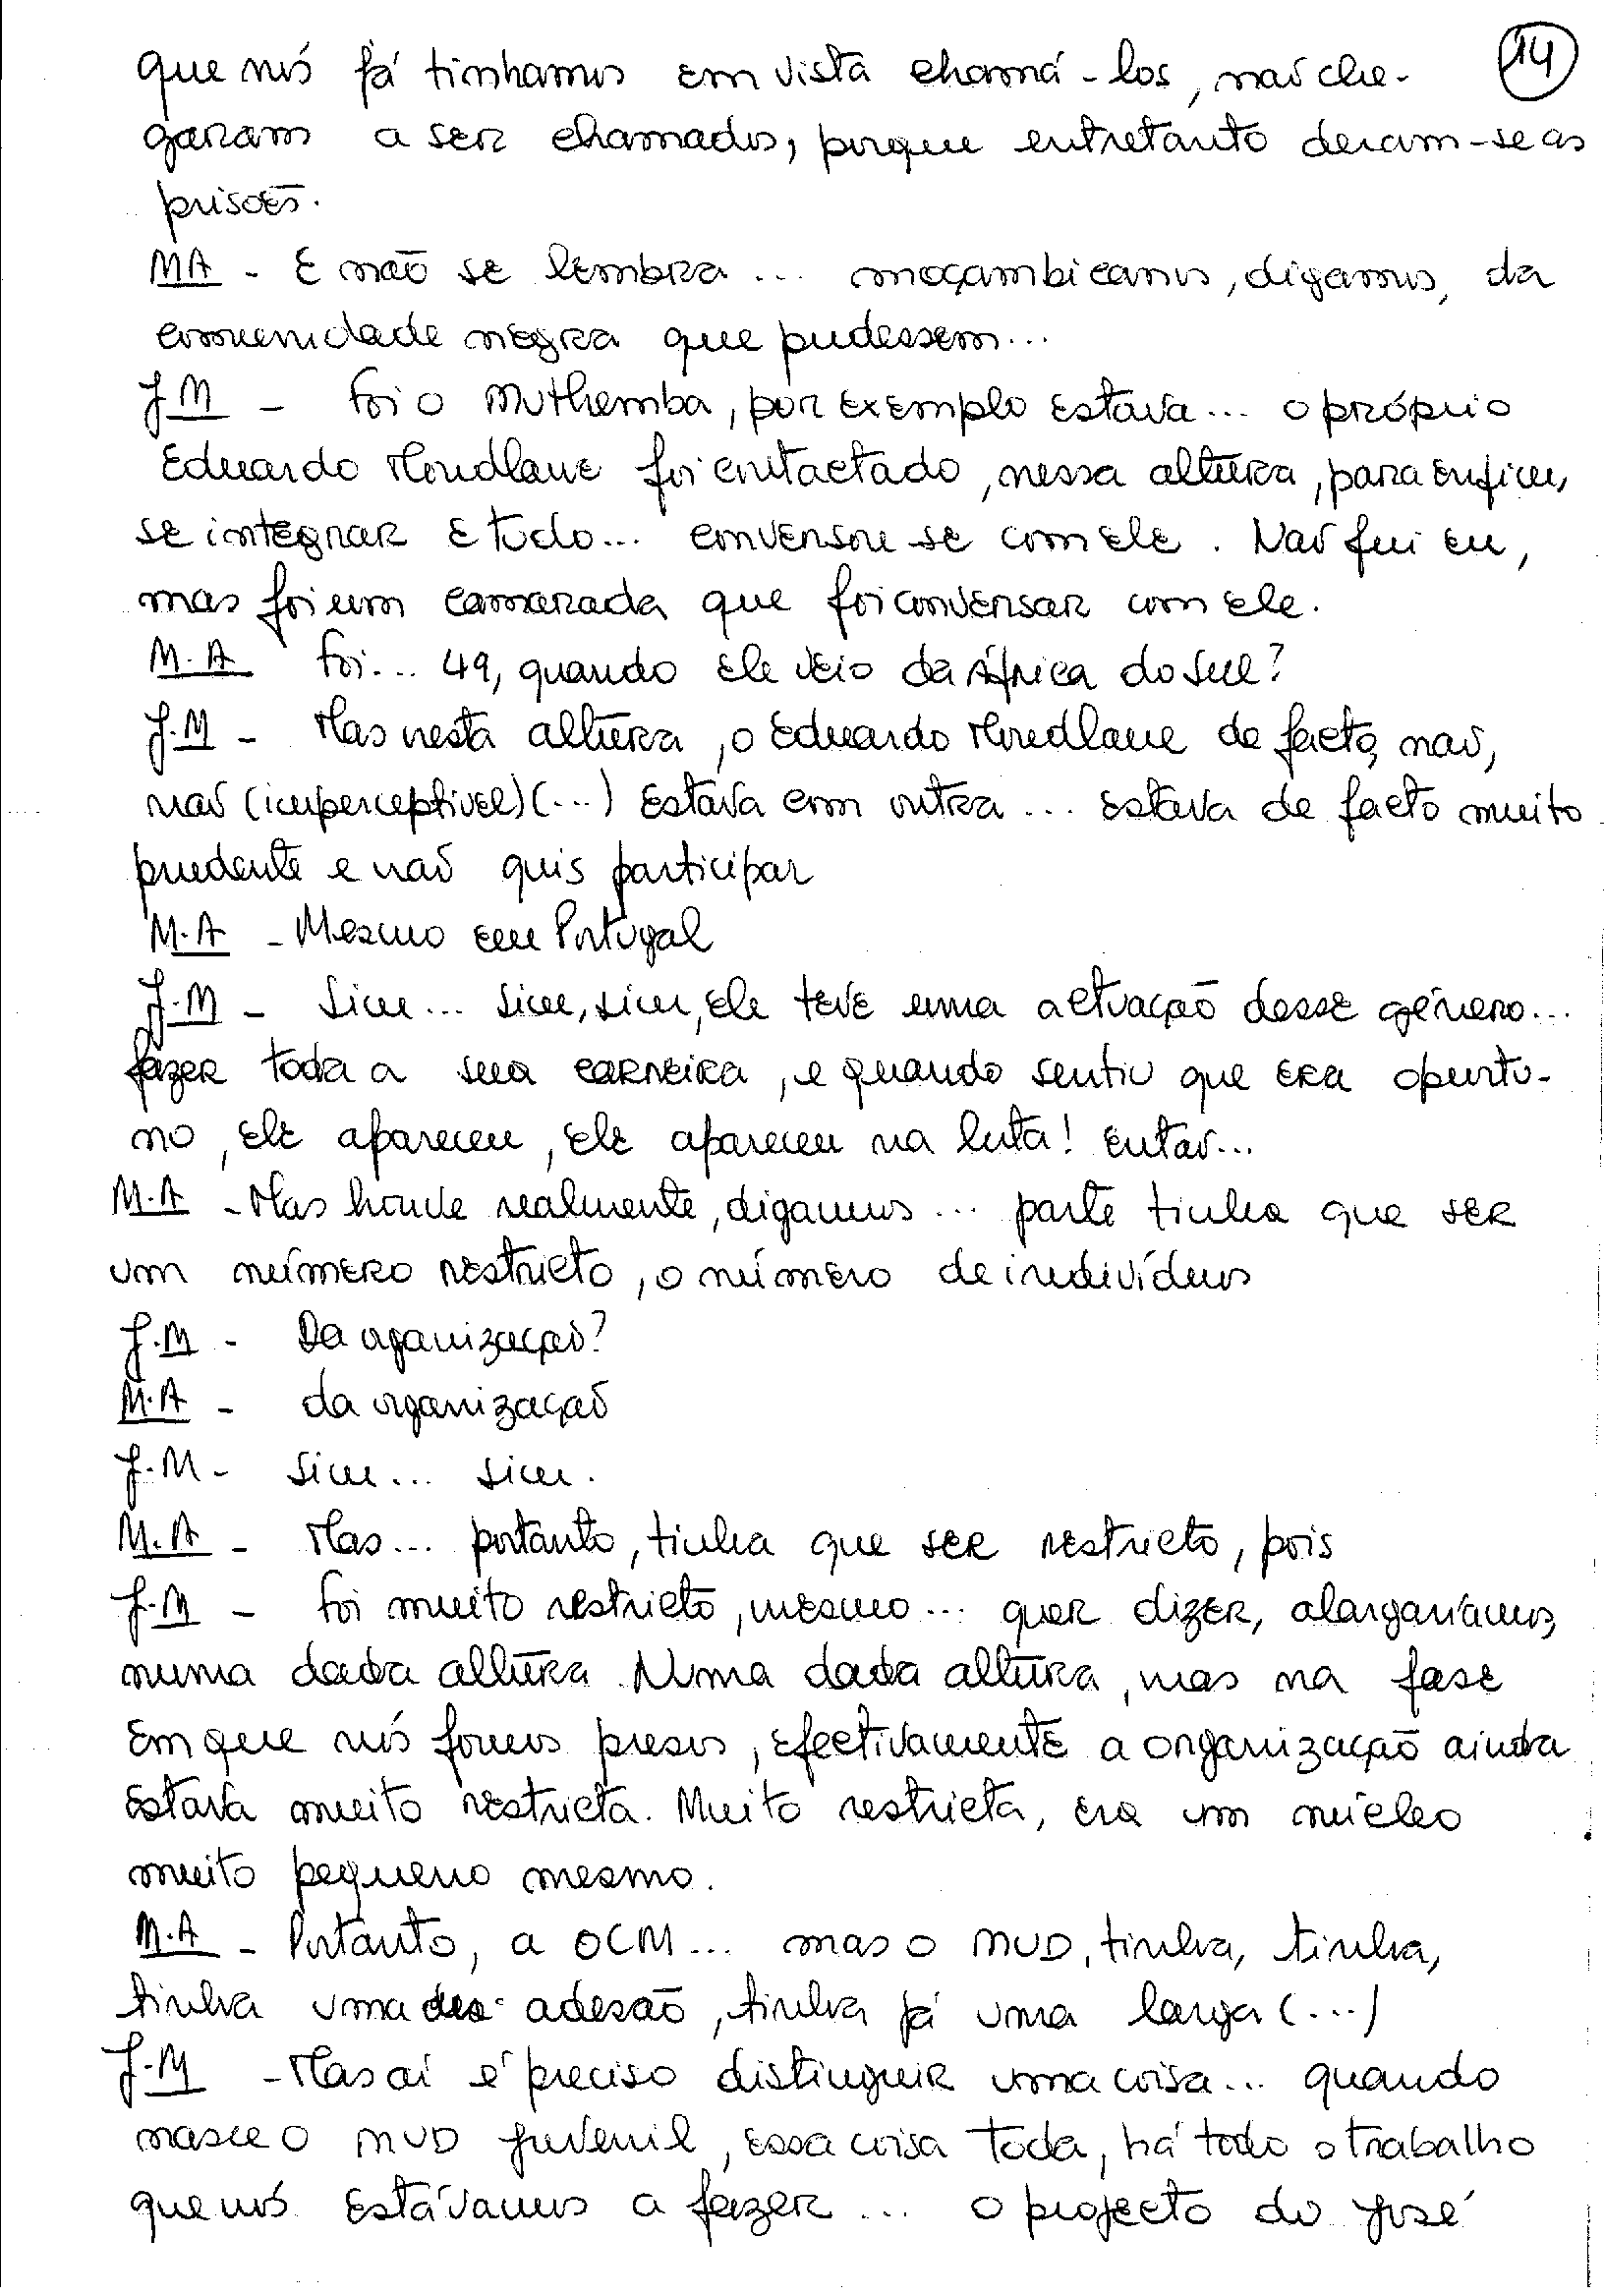 14
que nós já tinhamos em vista chamá-los, não che-
garam a ser chamados, porque entretanto deram-se as
prisões.
MA - E não se lembra ... moçambicanos, digamos, da
comunidade negra que pudessem...
J.M - Foi o Muthemba, por exemplo estava... o próprio
Eduardo Mondlane foi contactado, nessa altura, para enfim,
se integrar e tudo... conversou-se com ele. Não fui eu,
mas foi um camarada que foi conversar com ele.
M.A Foi... 49, quando ele veio da África do Sul?
J.M - Mas nesta altura, o Eduardo Mondlane de facto, não,
não (imperceptível)(...) Estava em outra ... Estava de facto muito
prudente e não quis participar
M.A - Mesmo em Portugal
J.M - Sim... sim, sim, ele teve uma actuação desse género...
fazer toda a sua carreira, e quando sentiu que era oportu-
no, ele apareceu, ele apareceu na luta! Então...
M.A - Mas houve realmente, digamos ... parte tinha que ser
um número restricto, o número de indivíduos
J.M - Da organização?
M.A - da organização
J.M - Sim... sim.
M.A - Mas... portanto, tinha que ser restricto, pois
J.M - Foi muito restricto, mesmo... quer dizer, alargaríamos,
numa dada altura. Numa dada altura, mas na fase
Em que nós fomos presos, efectivamente a organização ainda
Estava muito restricta. Muito restricta, era um núcleo
muito pequeno mesmo.
M.A - Portanto, a OCM... mas o MUD, tinha, tinha,
tinha uma adesão, tinha já uma larga (...)
J.M - Mas aí é preciso distinguir uma coisa... quando
nasce o MUD juvenil, essa coisa toda, há todo o trabalho
que nós estávamos a fazer ... o projecto do José